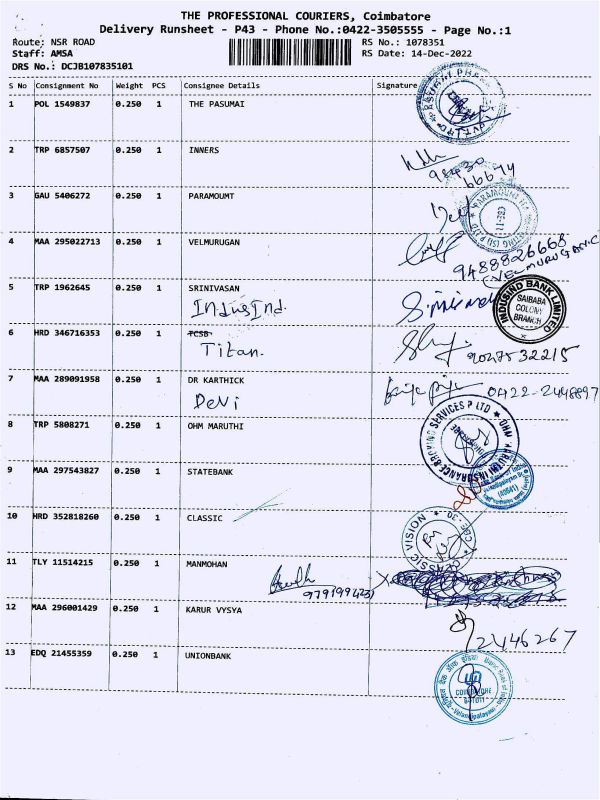 THE PROFESSIONAL COURIERS, Coimbatore
Delivery Runsheet - P43 - Phone No.:0422-3505555 - Page No.:1
Route: NSR ROAD RS No.: 1078351
Staff: AMSA RS Date: 14-Dec-2022
DRS No.: DCJB107835101
S No Consignment No Weight PCS Consignee Details Signature
1 POL 1549837 0.250 1 THE PASUMAI
2 TRP 6857507 0.250 1 INNERS
98430
66674
3 GAU 5406272 0.250 1 PARAMOUMT
4 MAA 295022713 0.250 1 VELMURUGAN
9488826668
5 TRP 1962645 0.250 1 SRINIVASAN
IndusInd.
INDUSIND BANK LIMITED
SAIBABA
COLONY
BRANCH
6 HRD 346716353 0.250 1 TCSB
Titan.
9047532215
7 MAA 289091958 0.250 1 DR KARTHICK
Devi
0422-2448897
8 TRP 5808271 0.250 1 OHM MARUTHI
9 MAA 297543827 0.250 1 STATEBANK
10 HRD 352818260 0.250 1 CLASSIC
CLASSIC VISION
11 TLY 11514215 0.250 1 MANMOHAN
12 MAA 296001429 0.250 1 KARUR VYSYA
2446267
13 EDQ 21455359 0.250 1 UNIONBANK